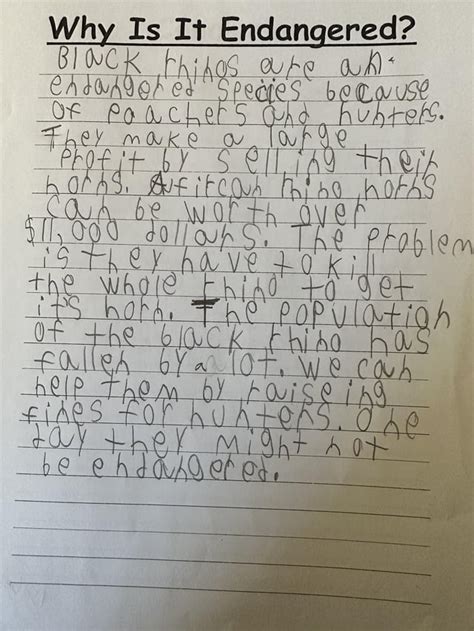 Why Is It Endangered?
Black rhinos are an
endangered species because
of poachers and hunters.
They make a large
profit by selling their
horns. Afircan rhino horns
can be worth over
$11,000 dollars. The problem
is they have to kill
the whole rhino to get
it's horn. The population
of the black rhino has
fallen by a lot. We can
help them by raiseing
fines for hunters. One
day they might not
be endangered.